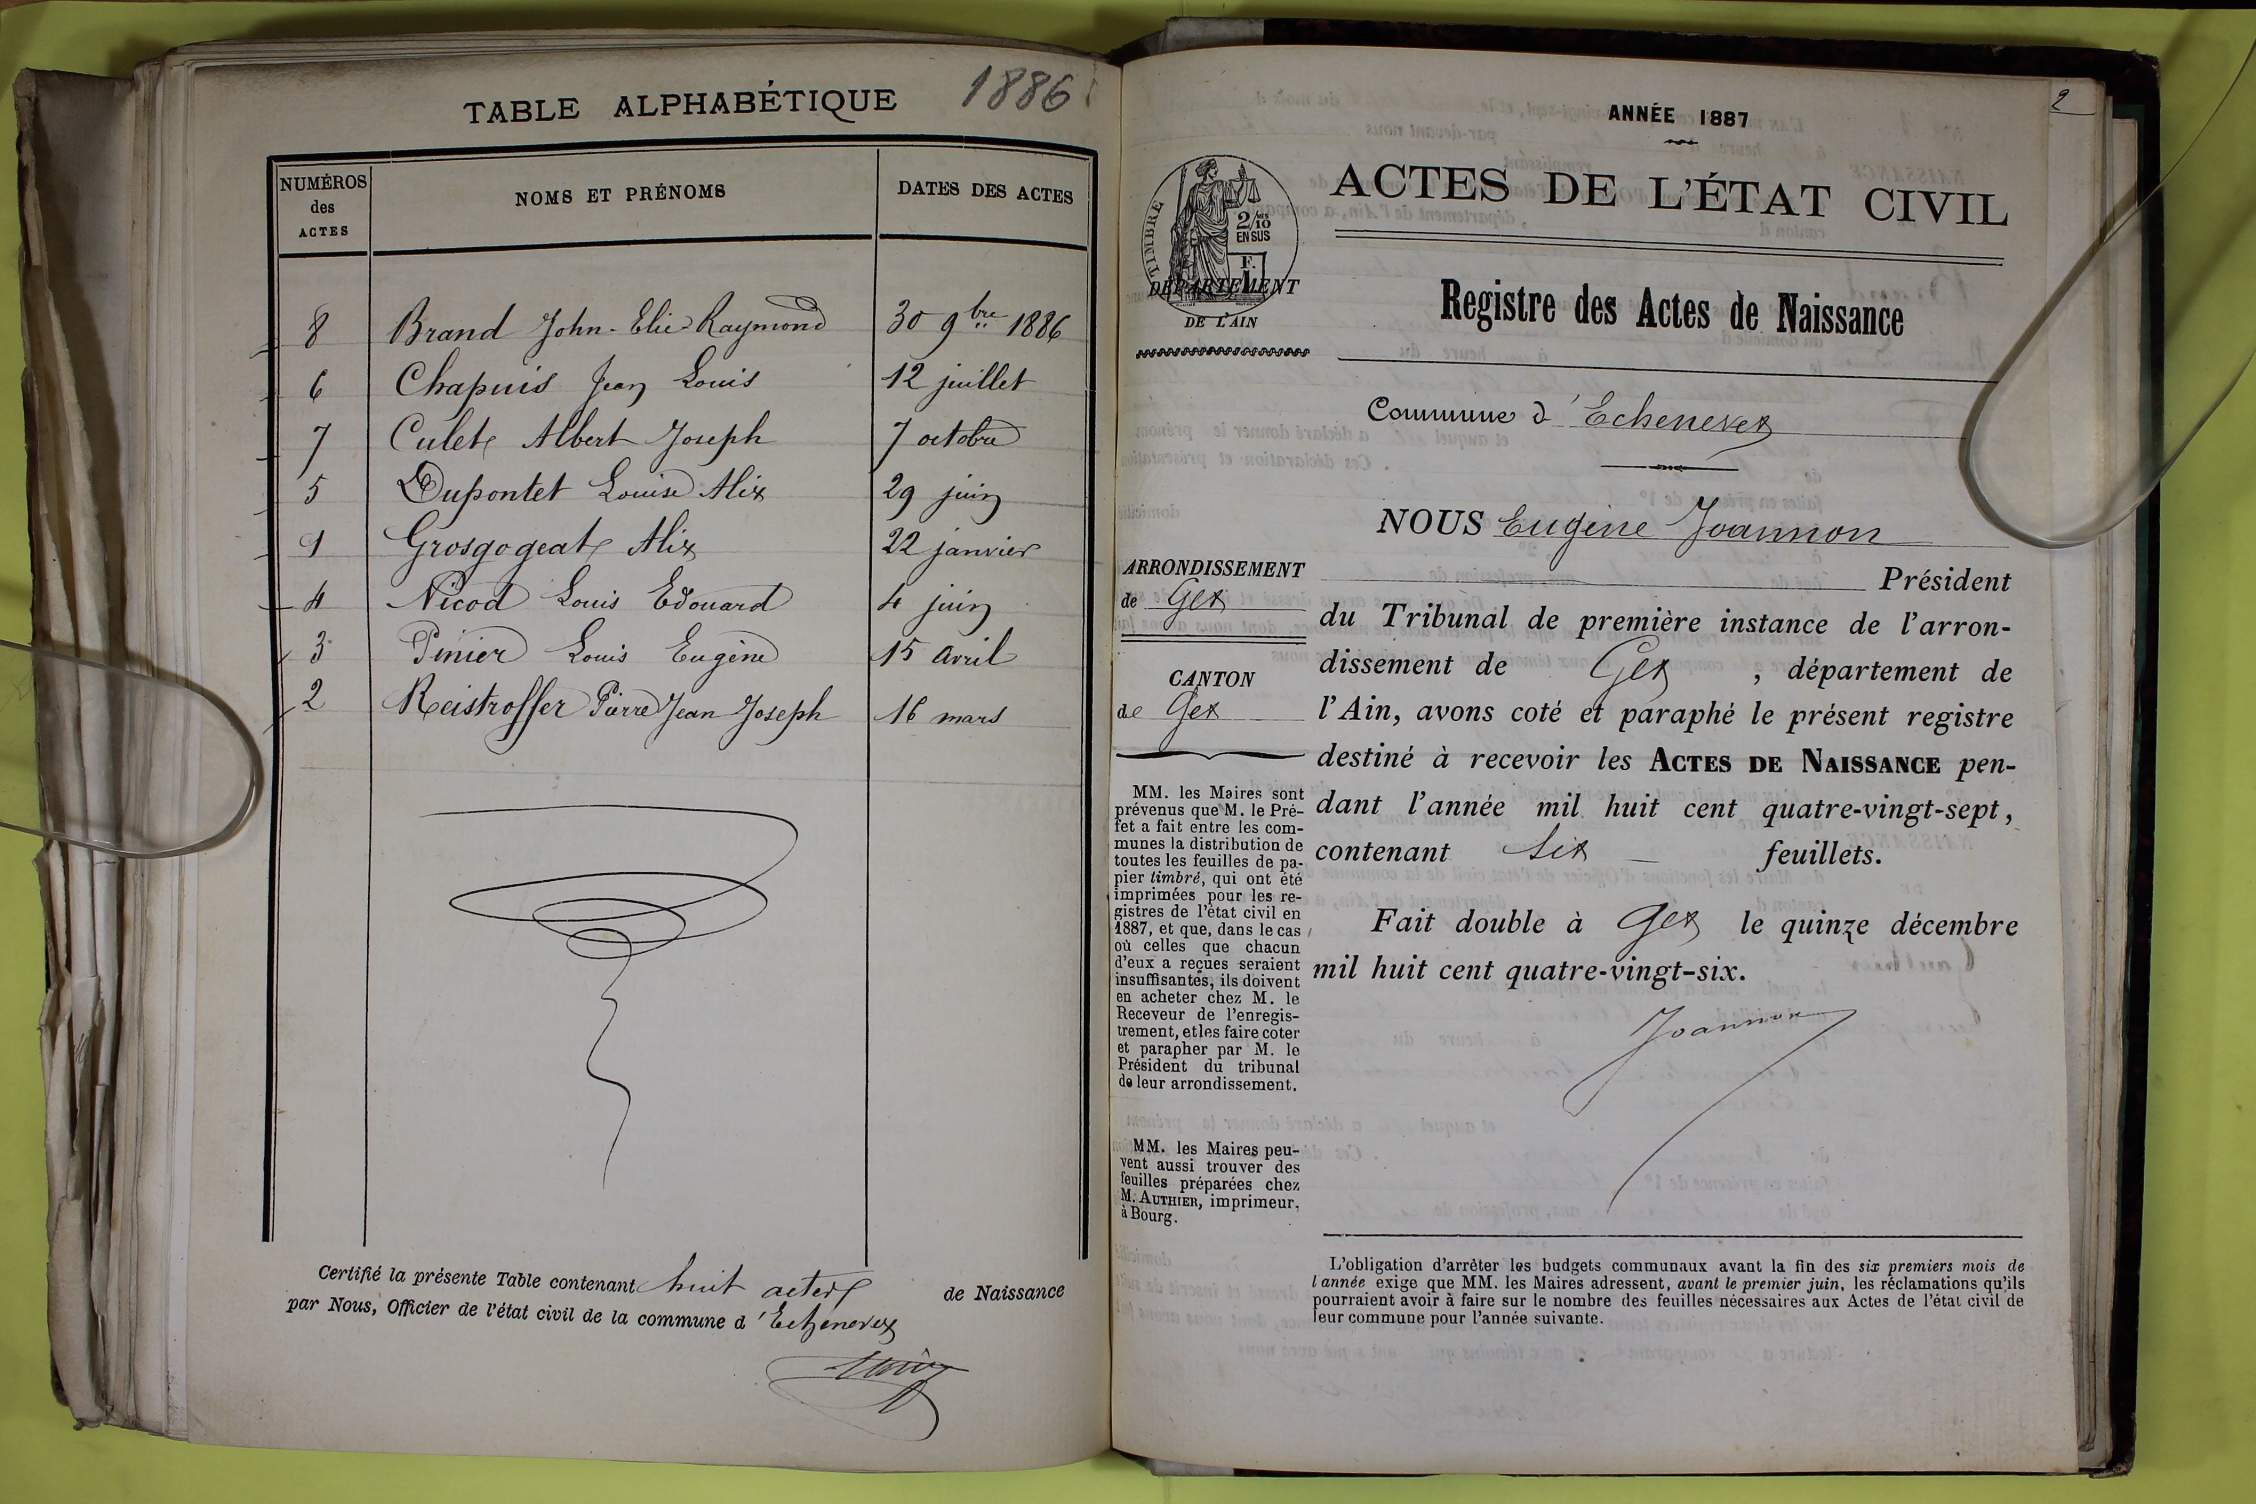 TABLE ALPHABÉTIQUE 1886
NUMÉROS des ACTES
NOMS ET PRÉNOMS
DATES DES ACTES
8 Brand John-Elie-Raymond 30 9bre 1886
6 Chapuis Jean Louis 12 juillet
7 Culet Albert Joseph 7 octobre
5 Dupontet Louise Alix 29 juin
1 Grosgogeat Alix 22 janvier
4 Nicod Louis Edouard 4 juin
3 Pinier Louis Eugène 15 avril
2 Reistroffer Pierre Jean Joseph 16 mars
Certifié la présente Table contenant huit actes de Naissance
par Nous, Officier de l'état civil de la commune d'Echenevex
2
ANNÉE 1887
TIMBRE
2/10
EN SUS
F.
1
DÉPARTEMENT
DE L'AIN
ACTES DE L'ÉTAT CIVIL
Registre des Actes de Naissance
Commune d'Echenevex
NOUS Eugène Joannon
Président
du Tribunal de première instance de l'arron-
dissement de Gex, département de
l'Ain, avons coté et paraphé le présent registre
destiné à recevoir les ACTES DE NAISSANCE pen-
dant l'année mil huit cent quatre-vingt-sept,
contenant six feuillets.
Fait double à Gex le quinze décembre
mil huit cent quatre-vingt-six.
Joannon
ARRONDISSEMENT
de Gex
CANTON
de Gex
MM. les Maires sont
prévenus que M. le Pré-
fet a fait entre les com-
munes la distribution de
toutes les feuilles de pa-
pier timbré, qui ont été
imprimées pour les re-
gistres de l'état civil en
1887, et que, dans le cas
où celles que chacun
d'eux a reçues seraient
insuffisantes, ils doivent
en acheter chez M. le
Receveur de l'enregis-
trement, et les faire coter
et parapher par M. le
Président du tribunal
de leur arrondissement.
MM. les Maires peu-
vent aussi trouver des
feuilles préparées chez
M. AUTHIER, imprimeur,
à Bourg.
L'obligation d'arrêter les budgets communaux avant la fin des six premiers mois de
l'année exige que MM. les Maires adressent, avant le premier juin, les réclamations qu'ils
pourraient avoir à faire sur le nombre des feuilles nécessaires aux Actes de l'état civil de
leur commune pour l'année suivante.